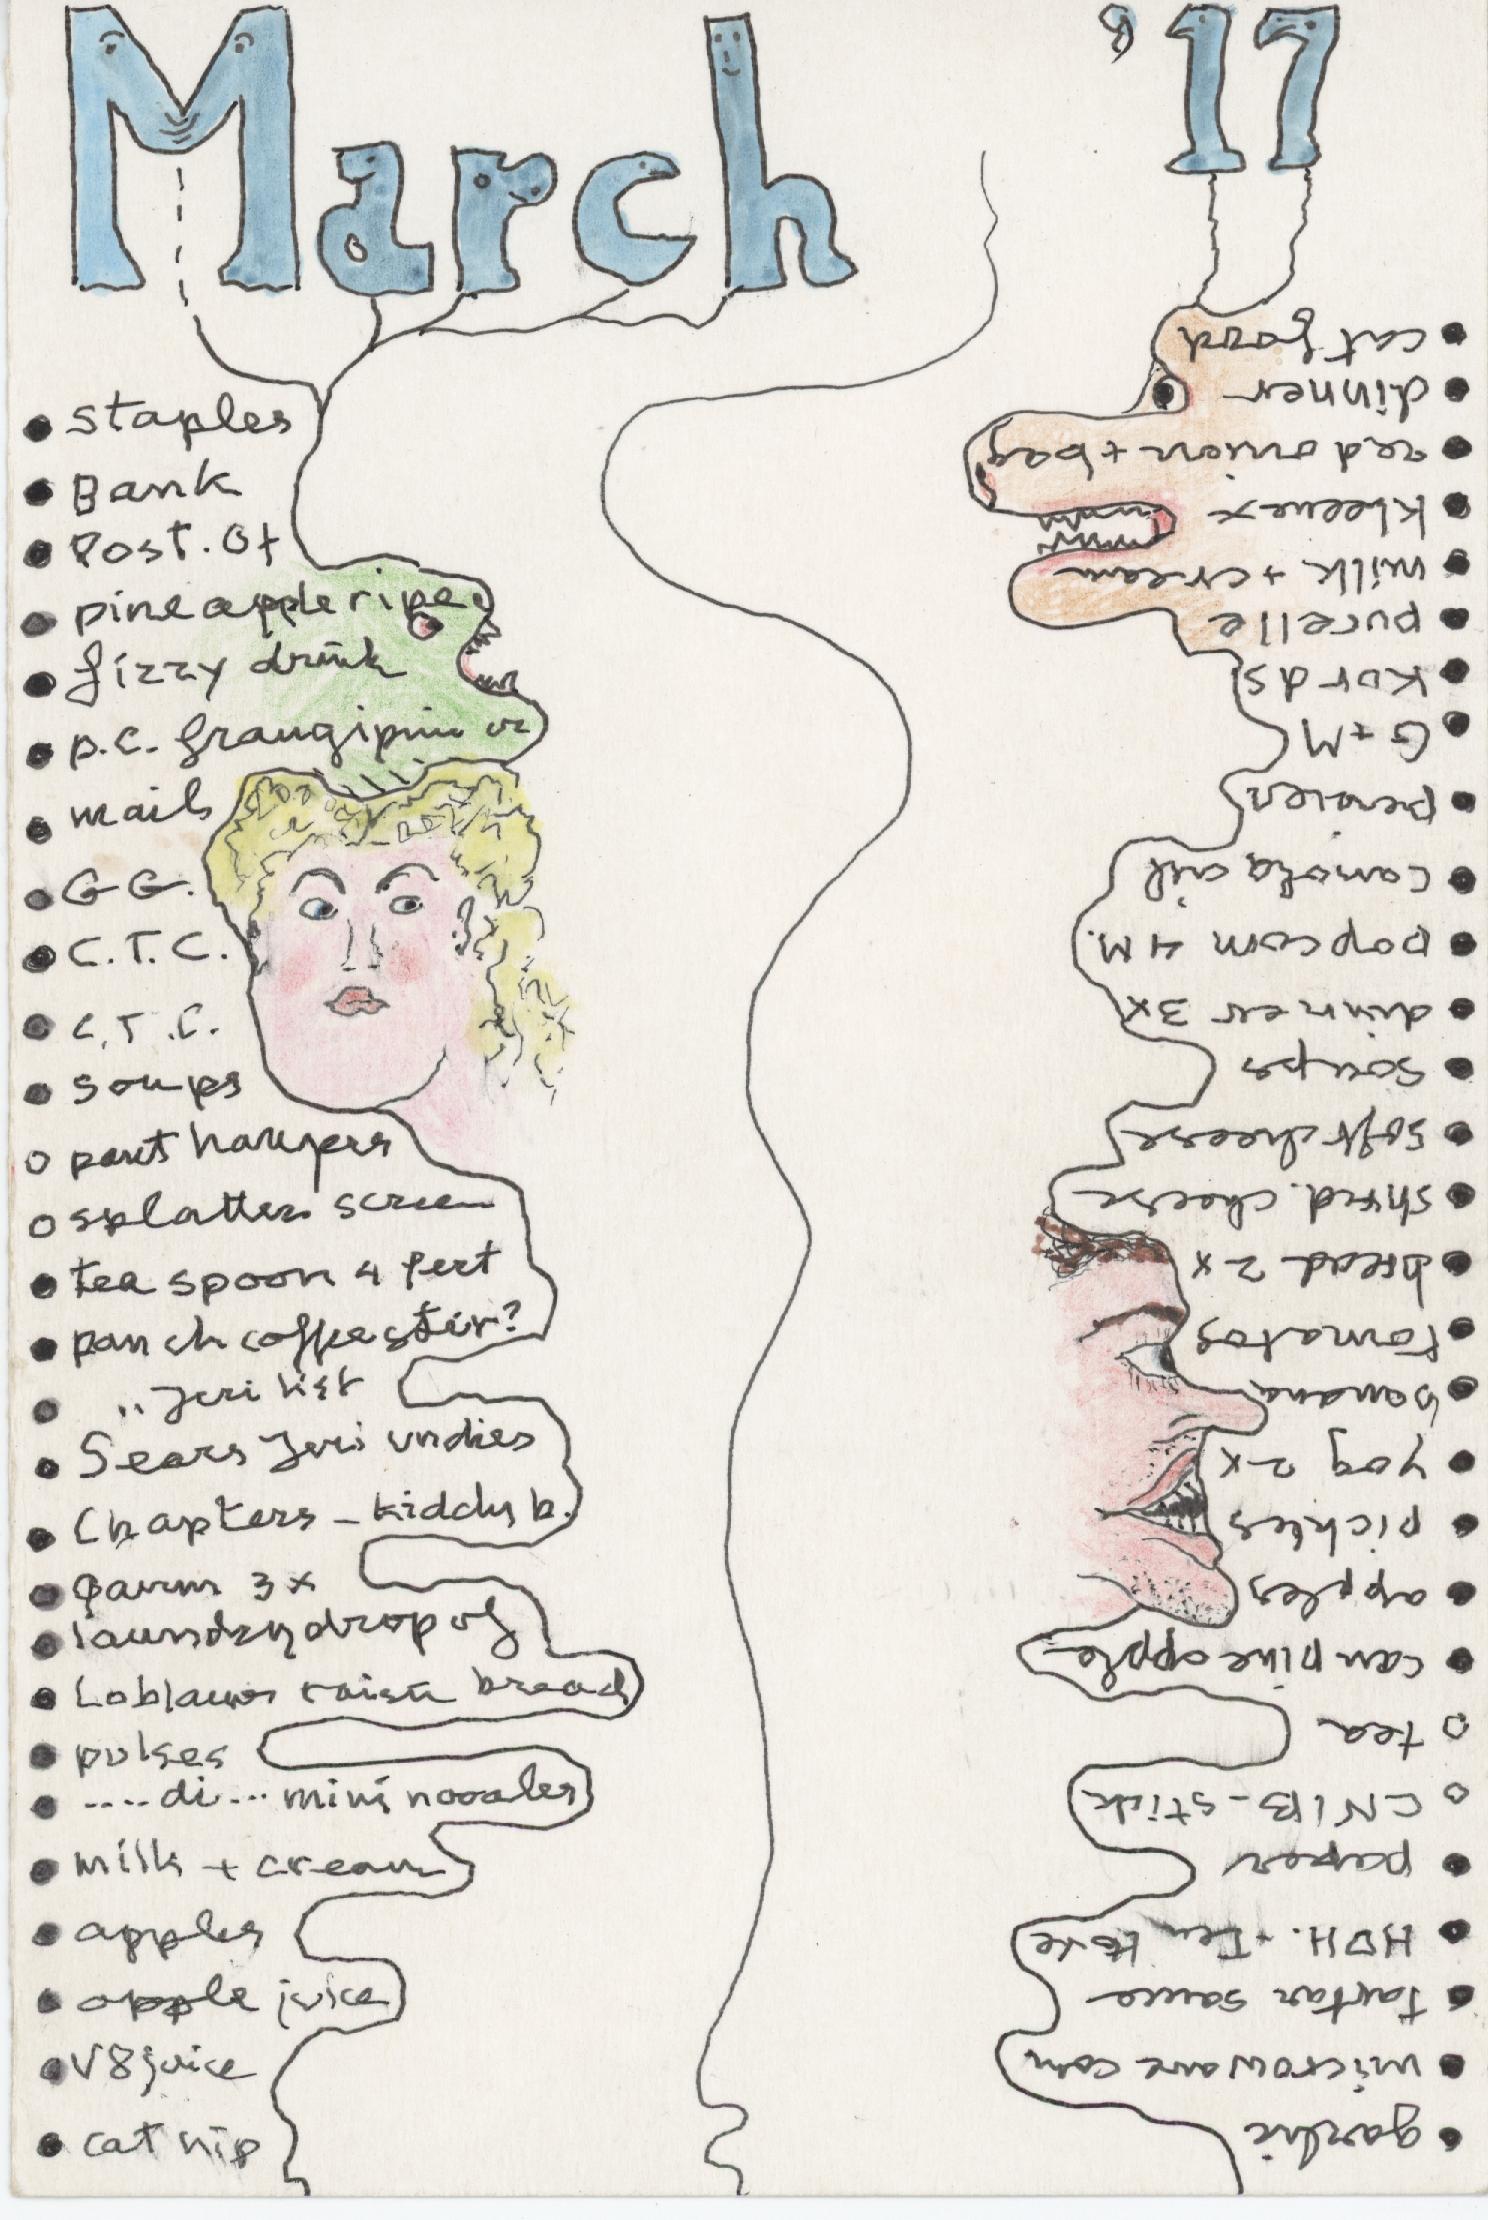 March '17
staples
Bank
Post. Of
pineapple ripe
fizzy drink
p.c. frangipini or
mail
G G.
C.T.C.
C.T.C.
soups
pant hangers
splatter screen
tea spoon 4 fert
panch coffee stir?
,, Jeri list
Sears Jeri undies
Chapters - kiddy b.
3x
laundry drop of
Loblaws raisin bread
pulses
....di... mini noodles
milk + cream
apples
apple juice
V8 juice
cat nip
garlic
microwave corn
tartar sauce
HDH.
paper
CNIB - stick
tea
can pineapple
apples
pickles
yog 2x
banana
tomatos
bread 2x
shred. cheese
soft cheese
soups
dinner 3x
popcorn 4 M.
canola oil
G+M
Kords
purelle
milk + cream
kleenex
red onion + bag
dinner
cat food